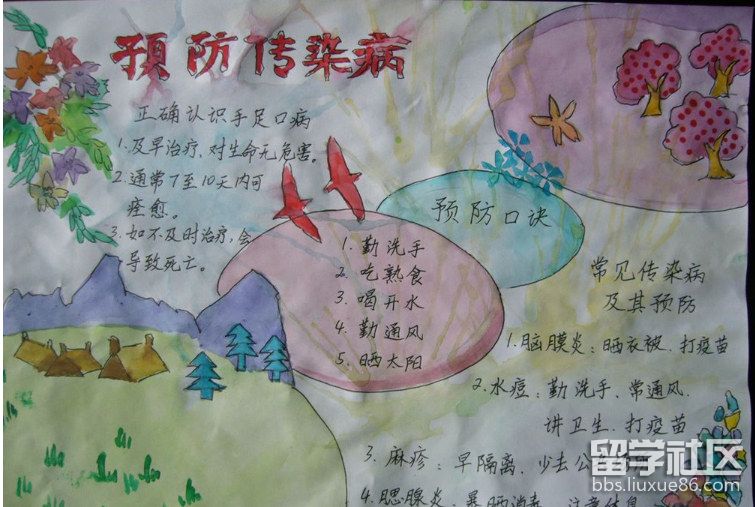 预防传染病
正确认识手足口病
1.及早治疗、对生命无危害。
2.通常7至10天内可
痊愈。
3.如不及时治疗,会
导致死亡。
预防口诀
1.勤洗手
2.吃熟食
3.喝开水
4.勤通风
5.晒太阳
常见传染病
及其预防
1.脑膜炎:晒衣被、打疫苗
2.水痘:勤洗手、常通风、
讲卫生、打疫苗
3.麻疹:早隔离、少去公
4.腮腺炎、暴晒消毒、注意休息
留学社区
bbs.liuxue86.com